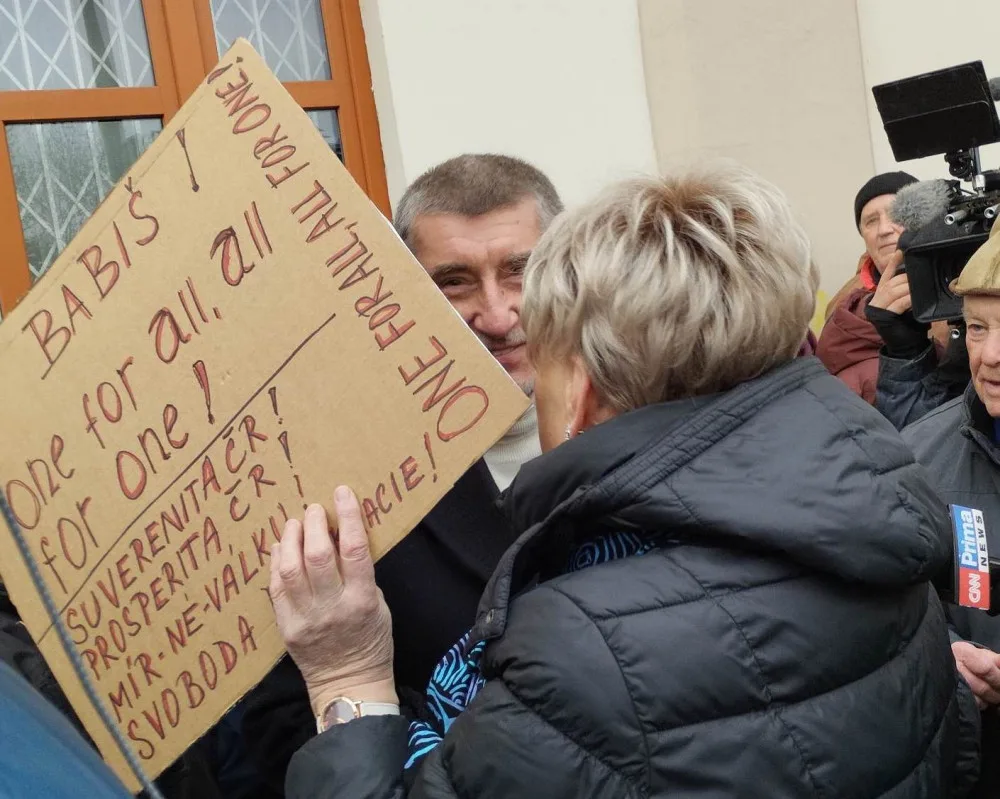 BABIŠ!
one for all, all
for one!
SUVERENITA ČR!
PROSPERITA ČR!
MÍR-NE-VÁLKU!
SVOBODA
ACIE!
ONE FOR ALL, ALL FOR ONE!
ONE
CNN Prima
NEWS